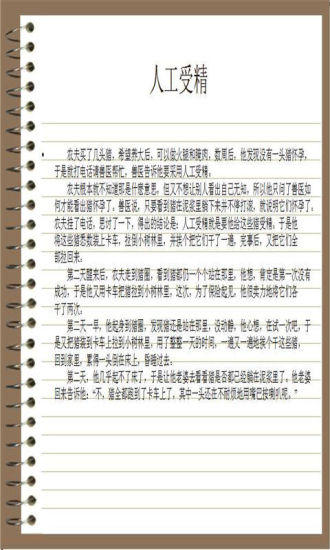 人工受精
农夫买了几头猪，希望养大后，可以做火腿和腌肉，数周后，他发现没有一头猪怀孕，
于是就打电话请兽医帮忙，兽医告诉他要采用人工受精。
农夫根本就不知道那是什麽意思，但又不想让别人看出自己无知，所以他只问了兽医如
何才能看出猪怀孕了。兽医说，只要看到猪在泥浆里躺下来并不停打滚，就说明它们怀孕了。
农夫挂了电话，思讨了一下，得出的结论是：人工受精就是要他给这些猪受精，于是他
将这些猪悉数装上卡车，拉到小树林里，并挨个把它们干了一遍，完事后，又把它们全
部拉回来。
第二天醒来后，农夫走到猪圈，看到猪都仍一个个站在那里，他想，肯定是第一次没有
成功，于是他又用卡车把猪拉到小树林里，这次，为了保险起见，他很卖力地将它们各
干了两次。
第二天一早，他起身到猪圈，发现猪还是站在那里，没动静，他心想，在试一次吧，于
是又把猪装到卡车上拉到小树林里，用了整整一天的时间，一遍又一遍地挨个干这些猪，
回到家里，累得一头倒在床上，昏睡过去：
第二天，他几乎起不了床了，于是让他老婆去看看猪是否都已经躺在泥浆里了。他老婆
回来告诉他：“不，猪全都跑到了卡车上了，其中一头还在不耐烦地用嘴巴按喇叭呢。”